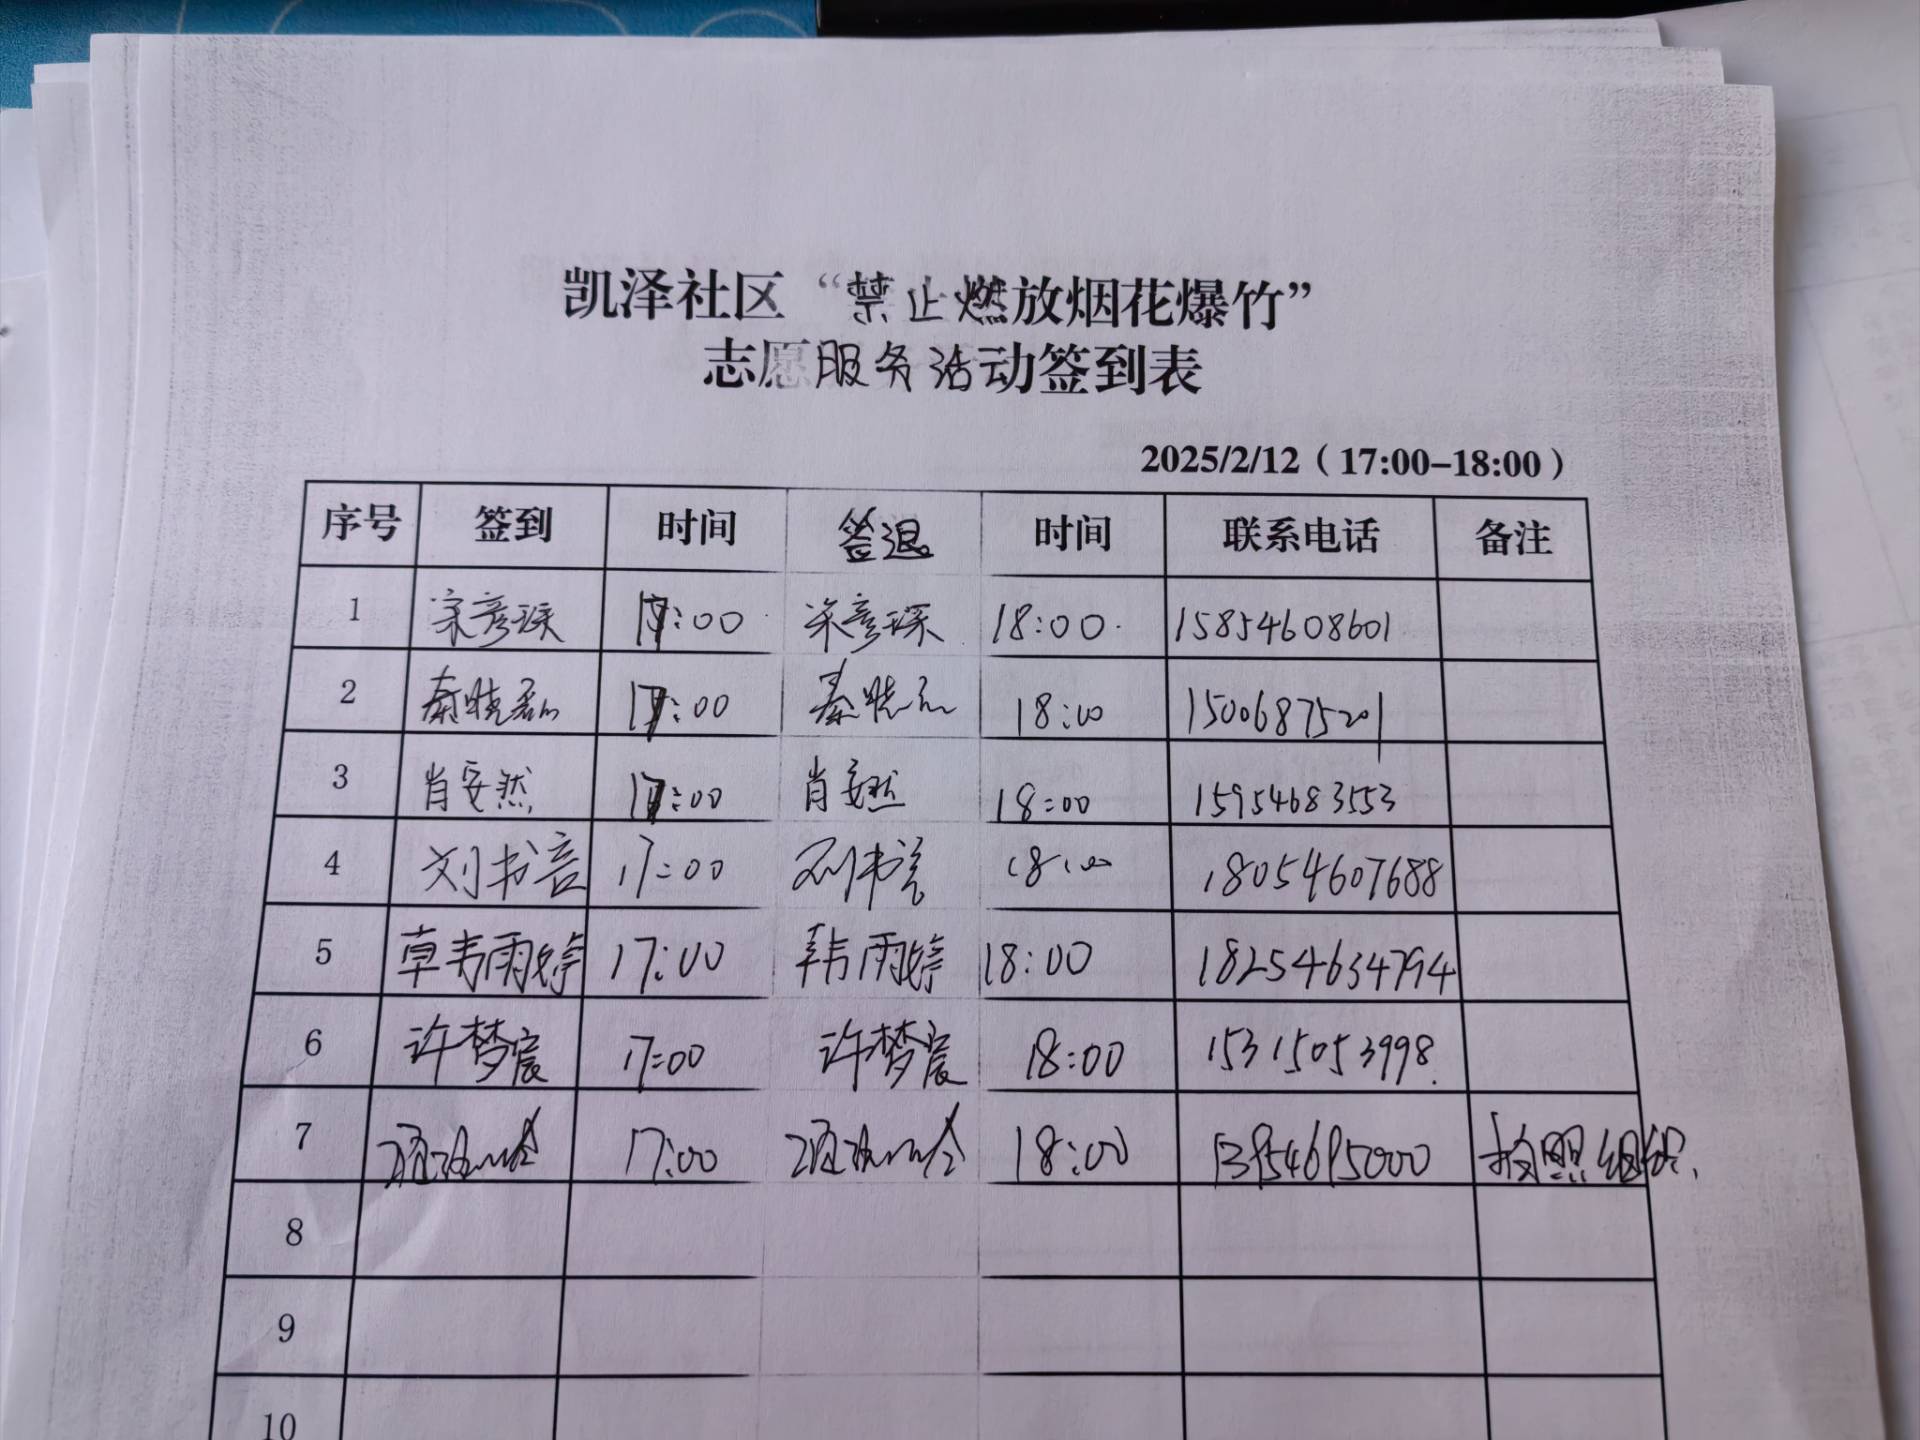 凯泽社区“禁止燃放烟花爆竹”
志愿服务活动签到表
2025/2/12（17:00-18:00）
序号 签到 时间 签退 时间 联系电话 备注
1 宋彦琛 17:00 宋彦琛 18:00 15854608601
2 秦晓磊 17:00 秦晓磊 18:00 15006875201
3 肖安然 17:00 肖安然 18:00 15954683553
4 刘书言 17:00 刘书言 18:00 18054607688
5 韩雨婷 17:00 韩雨婷 18:00 18254634794
6 许梦宸 17:00 许梦宸 18:00 15315053998
7 17:00 18:00 13954695000 拍照组织
8
9
10